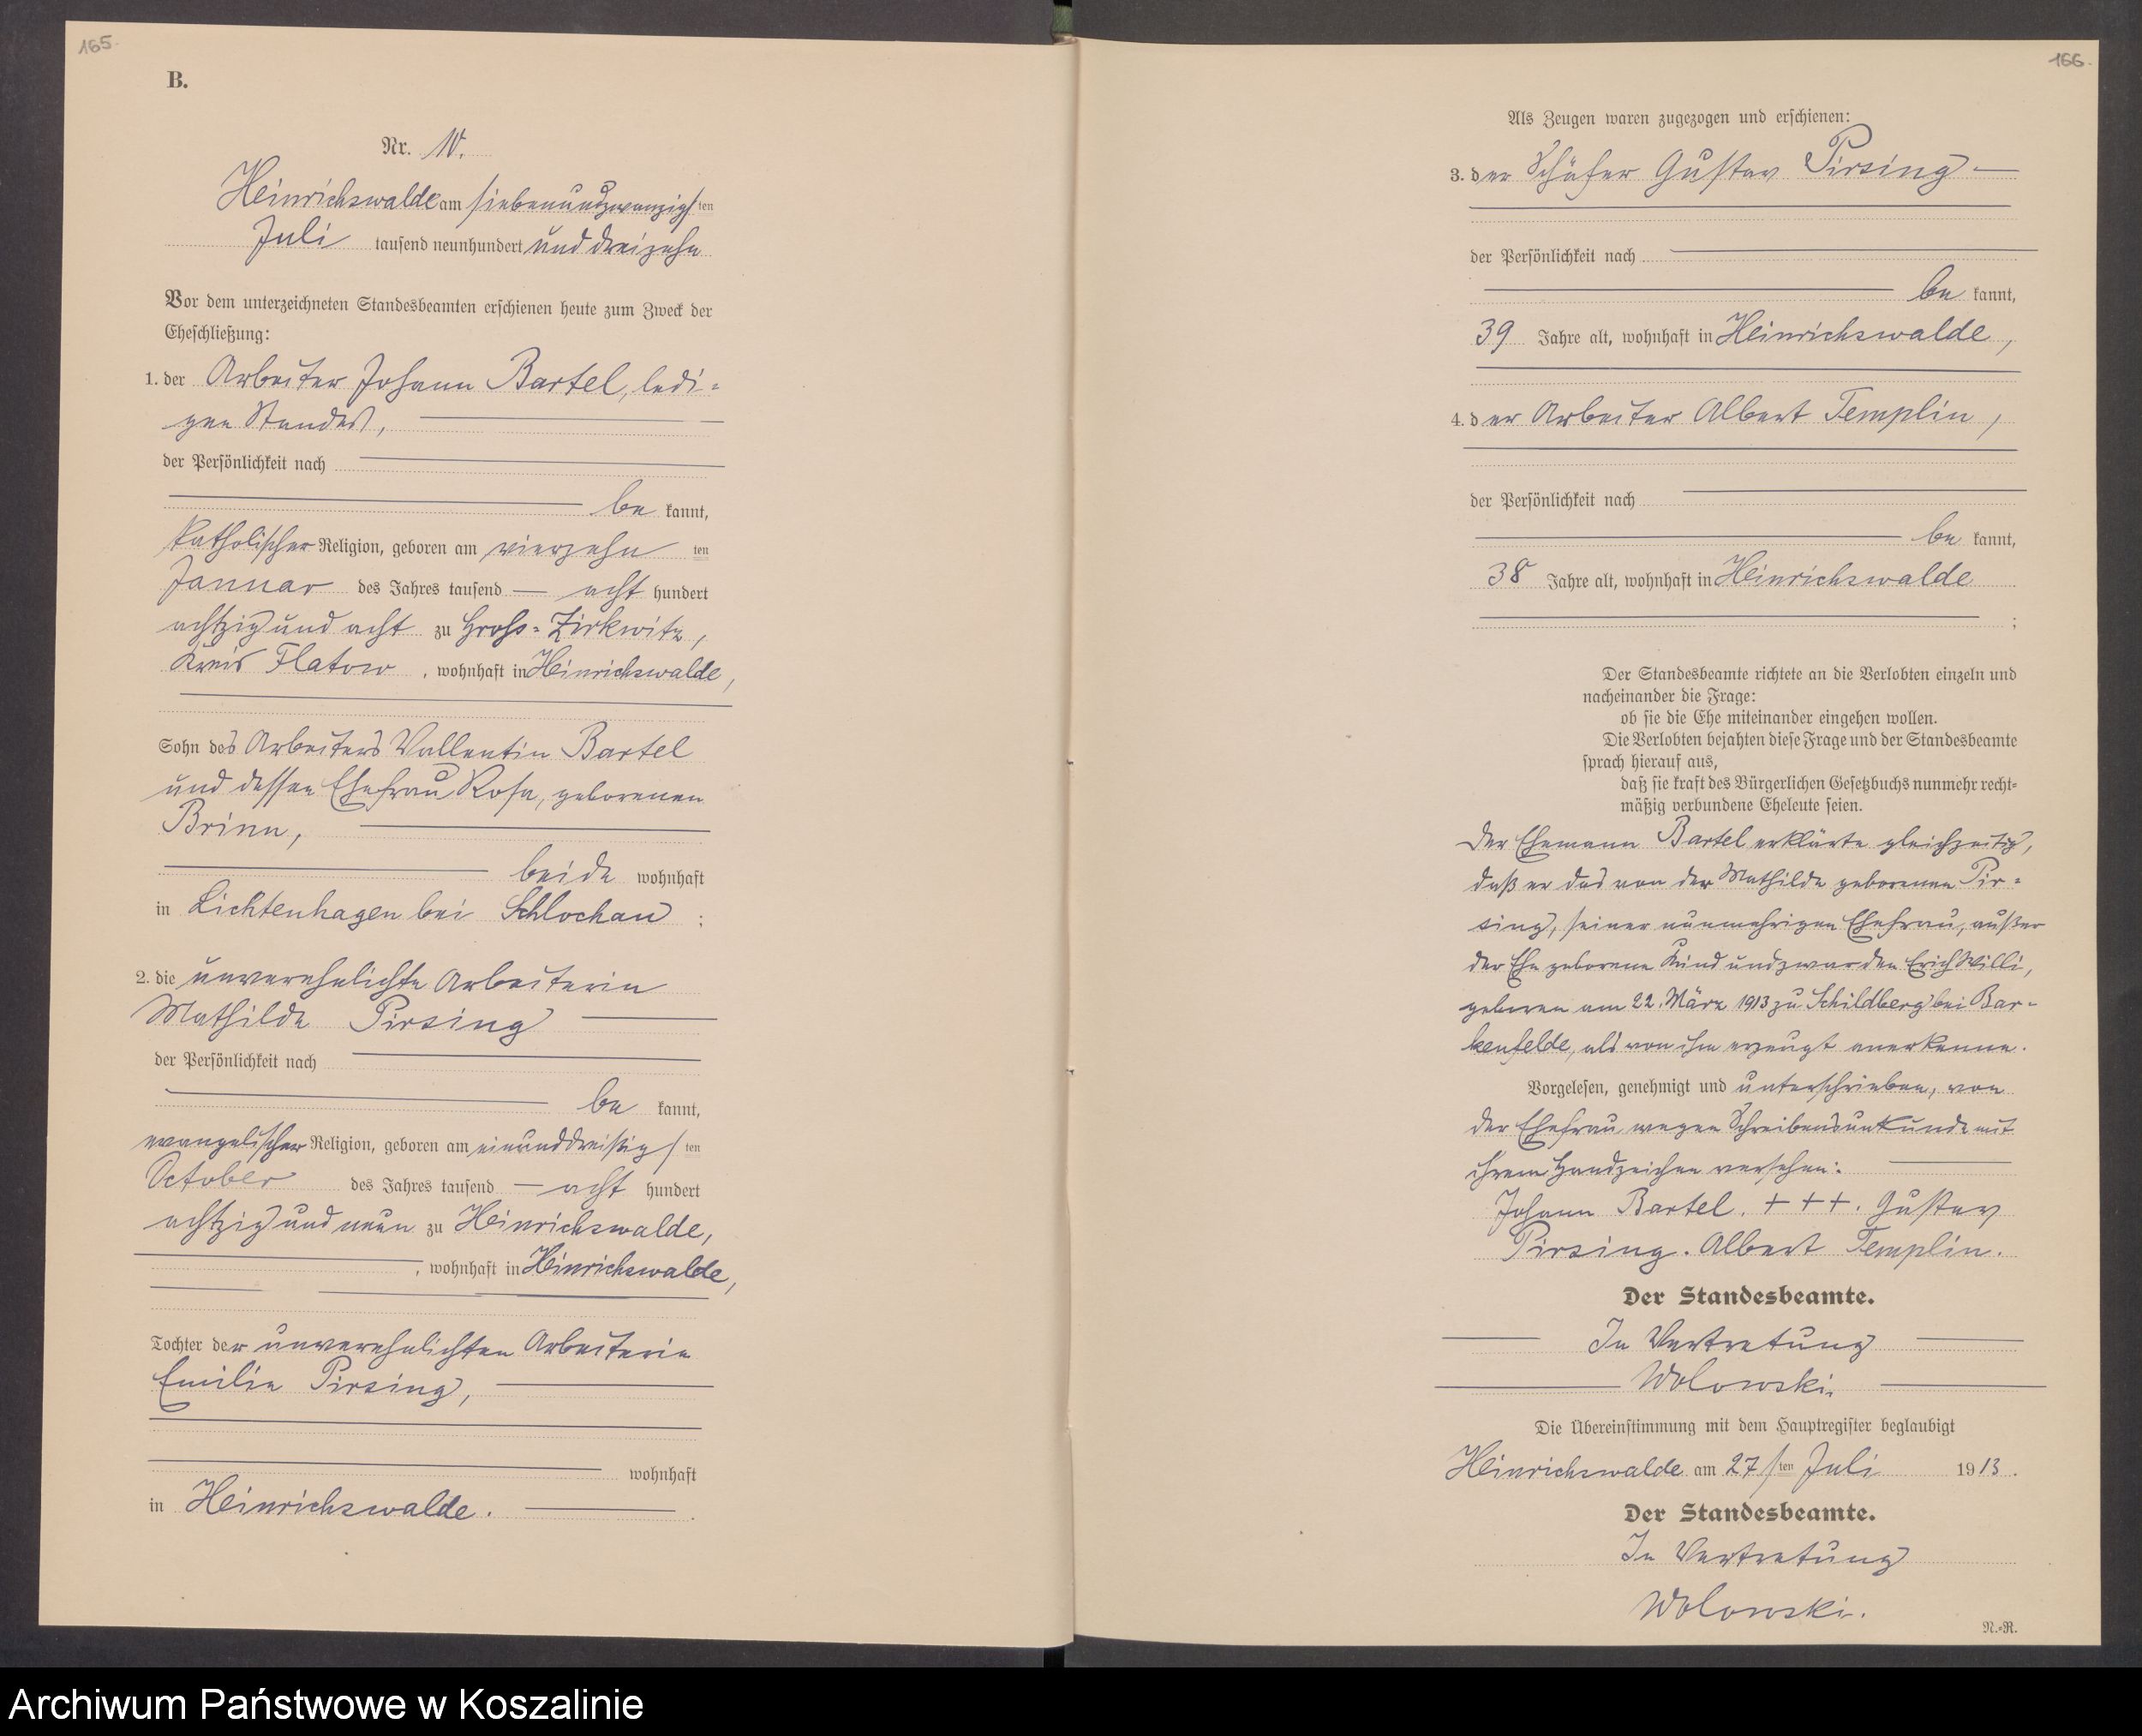 165.
B.
Nr. 10.
Heinrichswalde am siebenundzwanzigsten
Juli tausend neunhundert und dreizehn
Vor dem unterzeichneten Standesbeamten erschienen heute zum Zweck der
Eheschließung:
1. der Arbeiter Johann Bartel, ledi-
gen Standes,
der Persönlichkeit nach
be kannt,
katholischer Religion, geboren am vierzehn ten
Januar des Jahres tausend — acht hundert
achtzig und acht zu Groß-Zirkwitz,
Kreis Flatow, wohnhaft in Heinrichswalde,
Sohn des Arbeiters Vallentin Bartel
und dessen Ehefrau Rosa, geborenen
Brinn,
beide wohnhaft
in Lichtenhagen bei Schlochau ;
2. die unverehelichte Arbeiterin
Mathilde Pirsing
der Persönlichkeit nach
be kannt,
evangelischer Religion, geboren am einunddreißigsten
October des Jahres tausend — acht hundert
achtzig und neun zu Heinrichswalde,
, wohnhaft in Heinrichswalde,
Tochter der unverehelichten Arbeiterin
Emilie Pirsing,
wohnhaft
in Heinrichswalde.
166.
Als Zeugen waren zugezogen und erschienen:
3. der Schäfer Gustav Pirsing —
der Persönlichkeit nach
be kannt,
39 Jahre alt, wohnhaft in Heinrichswalde,
4. der Arbeiter Albert Templin,
der Persönlichkeit nach
be kannt,
38 Jahre alt, wohnhaft in Heinrichswalde
;
Der Standesbeamte richtete an die Verlobten einzeln und
nacheinander die Frage:
ob sie die Ehe miteinander eingehen wollen.
Die Verlobten bejahten diese Frage und der Standesbeamte
sprach hierauf aus,
daß sie kraft des Bürgerlichen Gesetzbuchs nunmehr recht-
mäßig verbundene Eheleute seien.
Der Ehemann Bartel erklärte gleichzeitig,
daß er das von der Mathilde geborenen Pir-
sing, seiner nunmehrigen Ehefrau, außer
der Ehe geborene Kind und zwar den Erich Willi,
geboren am 22. März 1913 zu Schildberg bei Bar-
kenfelde, als von ihm erzeugt anerkenne.
Vorgelesen, genehmigt und unterschrieben, von
der Ehefrau wegen Schreibensunkunde mit
ihrem Handzeichen versehen:
Johann Bartel. + + +. Gustav
Pirsing. Albert Templin.
Der Standesbeamte.
In Vertretung
Wolowski.
Die Übereinstimmung mit dem Hauptregister beglaubigt
Heinrichswalde am 27sten Juli 1913.
Der Standesbeamte.
In Vertretung
Wolowski.
N.-R.
Archiwum Państwowe w Koszalinie